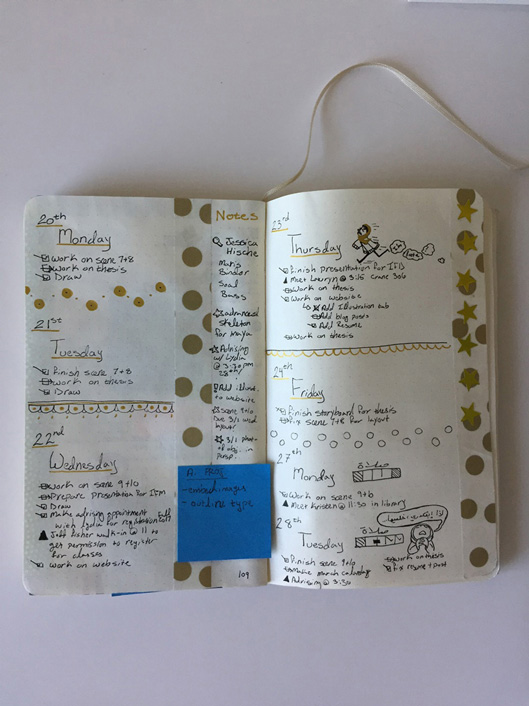 20th
Monday
Work on scene 7+8
Work on thesis
Draw
21st
Tuesday
Finish scene 7+8
Work on thesis
Draw
22nd
Wednesday
Work on scene 9+10
Prepare presentation for IFM
Draw
Make advising appointment
with Lydia for registration
Jeff Fisher walk-in @ 11 to
get permission to register
for classes
Work on website
Notes
Jessica
Hische
Saul
Bass
advanced
skeleton
for Maya
Advising
w/ Lydia
@ 3:30 pm
28th
Add
to website
scene 9+10
Due 3/2 w/
layout
3/2
of obj. in
persp.
A. PROJ
- outline type
109
23rd
Thursday
Finish presentation for IFM
Meet @ 3:15 Crane 306
Work on thesis
Work on website
Add Illustration tab
Add blog posts
Add Resume
Work on thesis
24th
Friday
Finish storyboard for thesis
Fix scene 7+8 for layout
27th
Monday
Work on scene 9+10
Meet Kristen @ 11:30 in library
28th
Tuesday
Finish scene 9+10
Make march calendar
Advising @ 3:30
Work on thesis
Fix resume + post